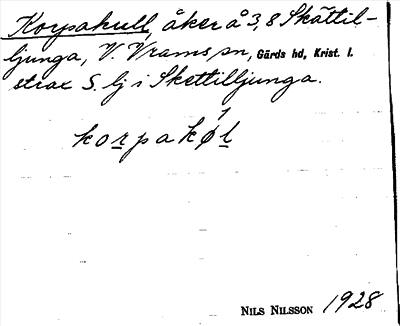 Korpakull, åker å 3,8 Skättil-
ljunga, V. Vrams sn, Gärds hd, Krist. l.
strax S. lj i Skettilljunga.
korpakø̀l
NILS NILSSON 1928